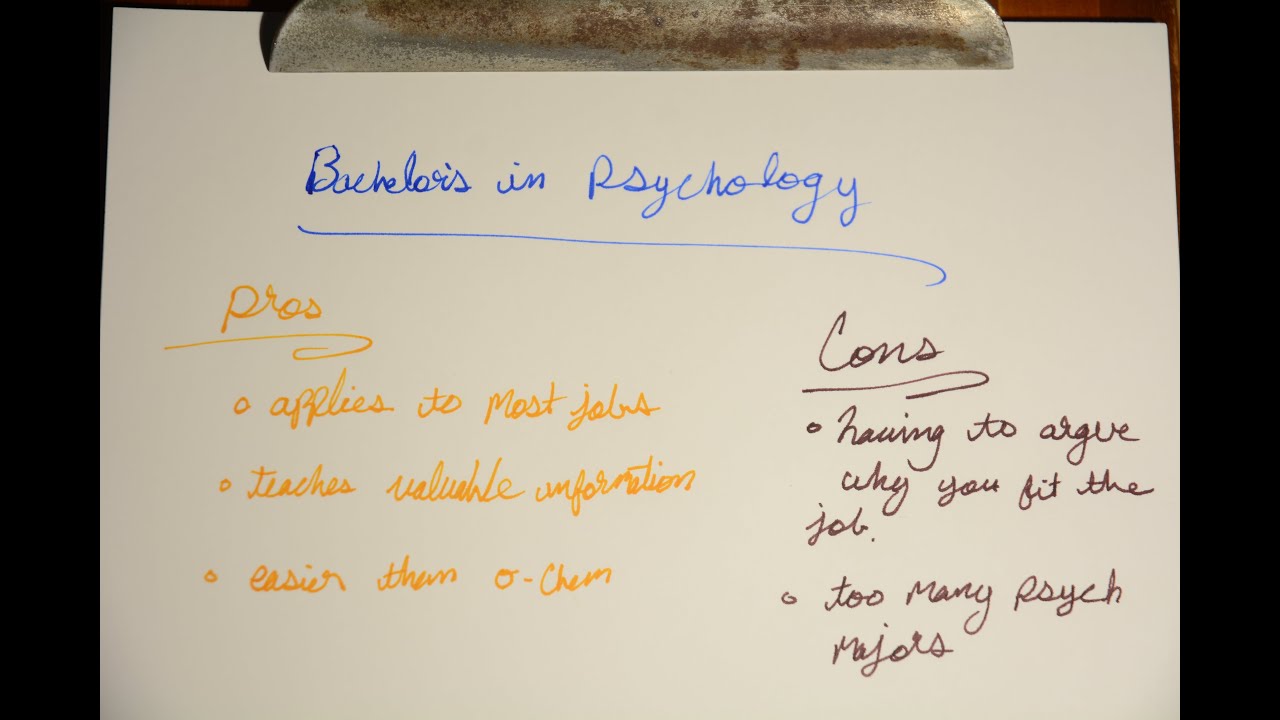 Bachelor's in Psychology
Pros
applies to most jobs
teaches valuable information
easier than o-chem
Cons
having to argue
why you fit the
job.
too many psych
majors